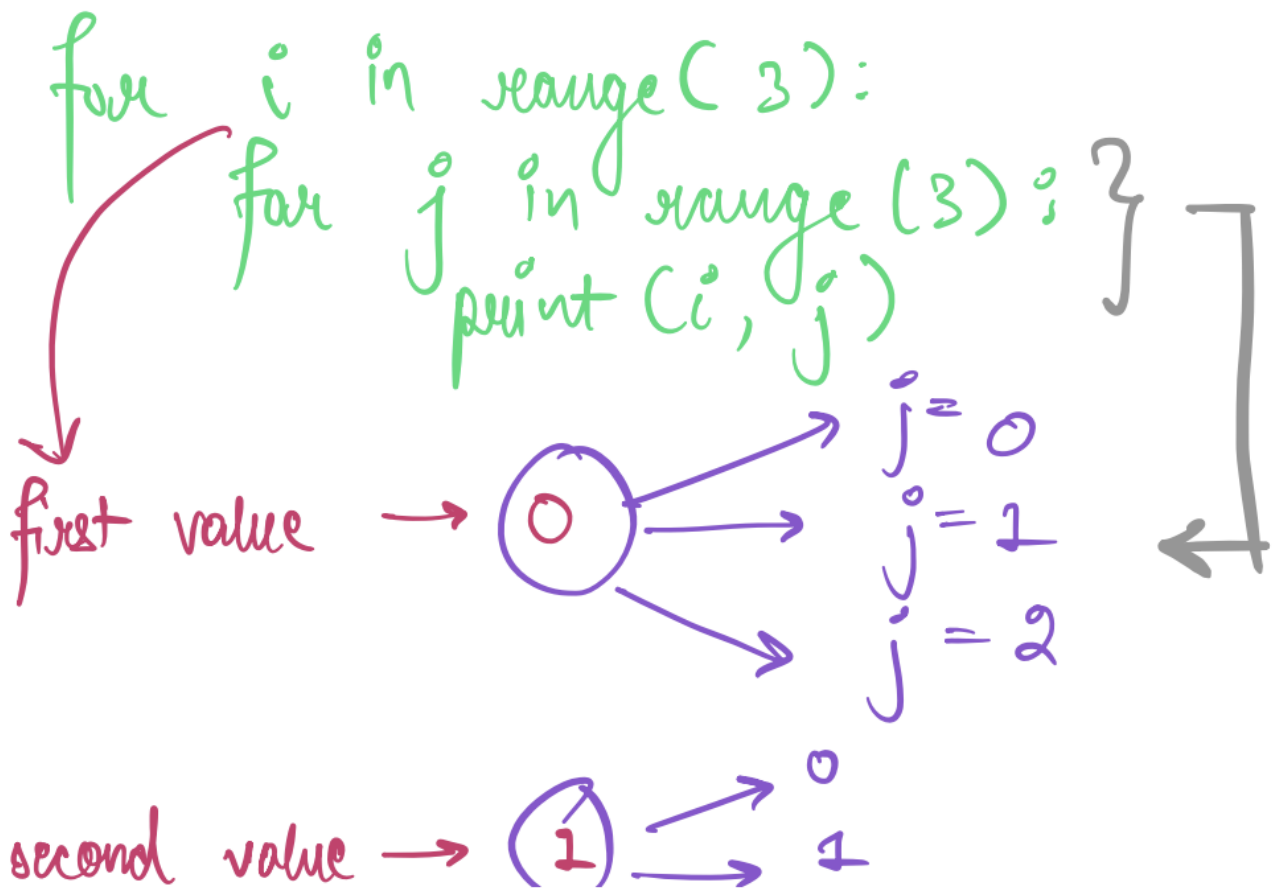 for i in range(3):
for j in range(3):
print(i, j)
j = 0
first value → 0 j = 1
j = 2
0
second value → 1 1